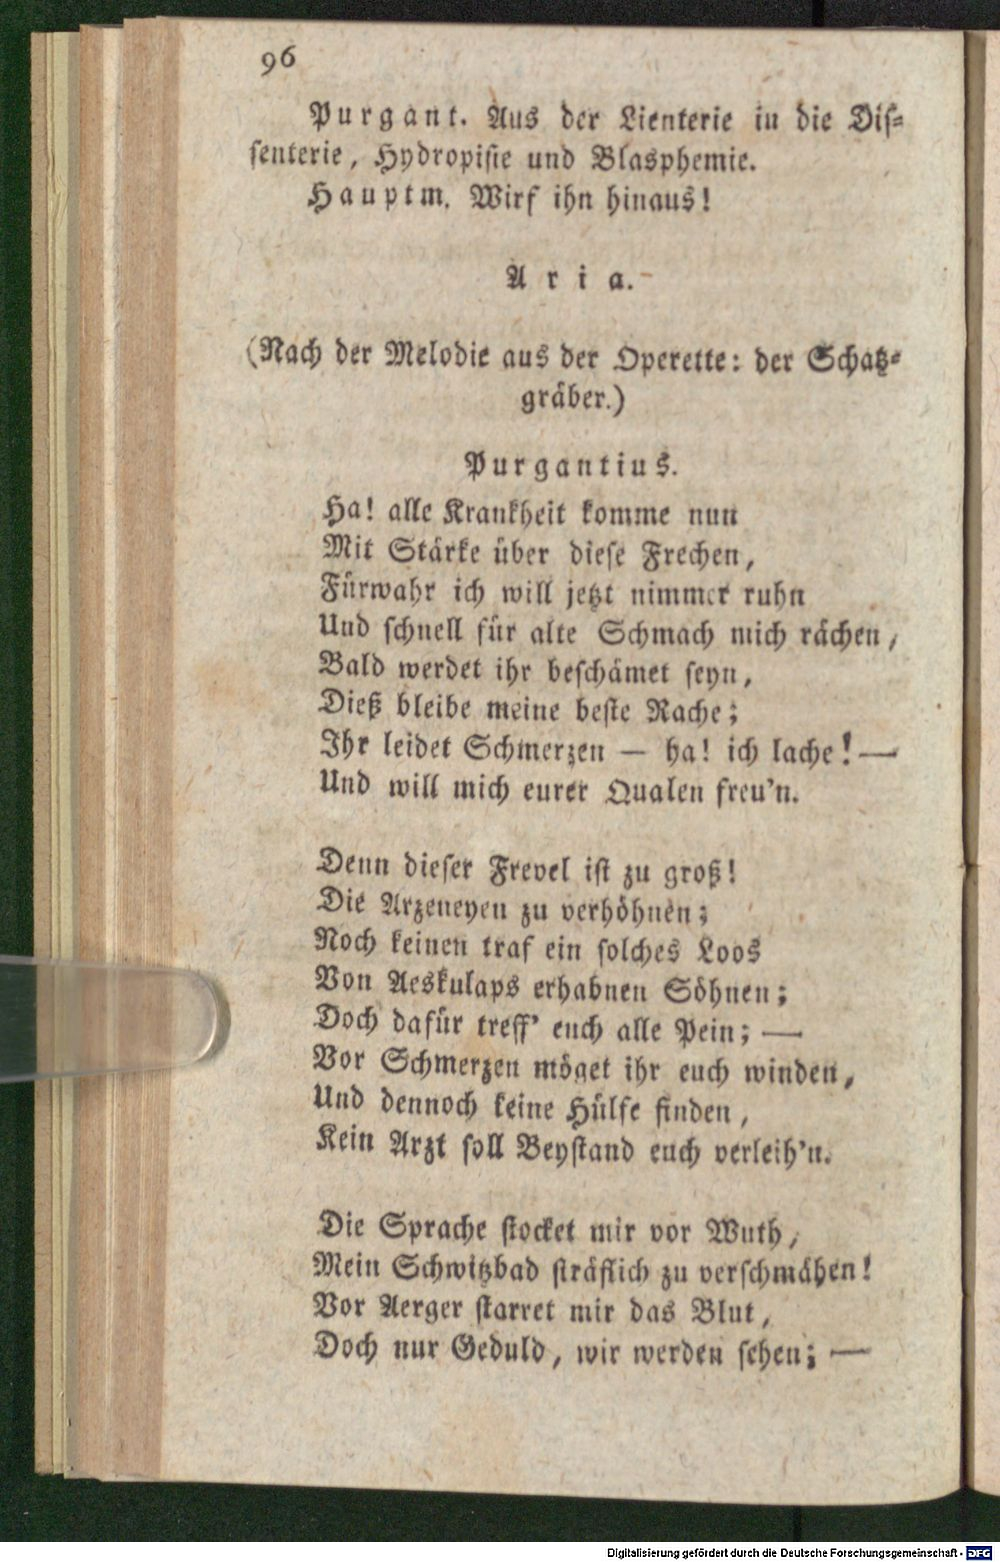 96
Purgant. Aus der Lienterie in die Dis-
senterie, Hydropisie und Blasphemie.
Hauptm. Wirf ihn hinaus!
Aria.
(Nach der Melodie aus der Operette: der Schatz-
gräber.)
Purgantius.
Ha! alle Krankheit komme nun
Mit Stärke über diese Frechen,
Fürwahr ich will jetzt nimmer ruhn
Und schnell für alte Schmach mich rächen,
Bald werdet ihr beschämet seyn,
Dieß bleibe meine beste Rache;
Ihr leidet Schmerzen — ha! ich lache! —
Und will mich eurer Qualen freu'n.
Denn dieser Frevel ist zu groß!
Die Arzeneyen zu verhöhnen;
Noch keinen traf ein solches Loos
Von Aeskulaps erhabnen Söhnen;
Doch dafür treff' euch alle Pein; —
Vor Schmerzen möget ihr euch winden,
Und dennoch keine Hülfe finden,
Kein Arzt soll Beystand euch verleih'n.
Die Sprache stocket mir vor Wuth,
Mein Schwitzbad sträflich zu verschmähen!
Vor Aerger starret mir das Blut,
Doch nur Geduld, wir werden sehen; —
Digitalisierung gefördert durch die Deutsche Forschungsgemeinschaft - DFG